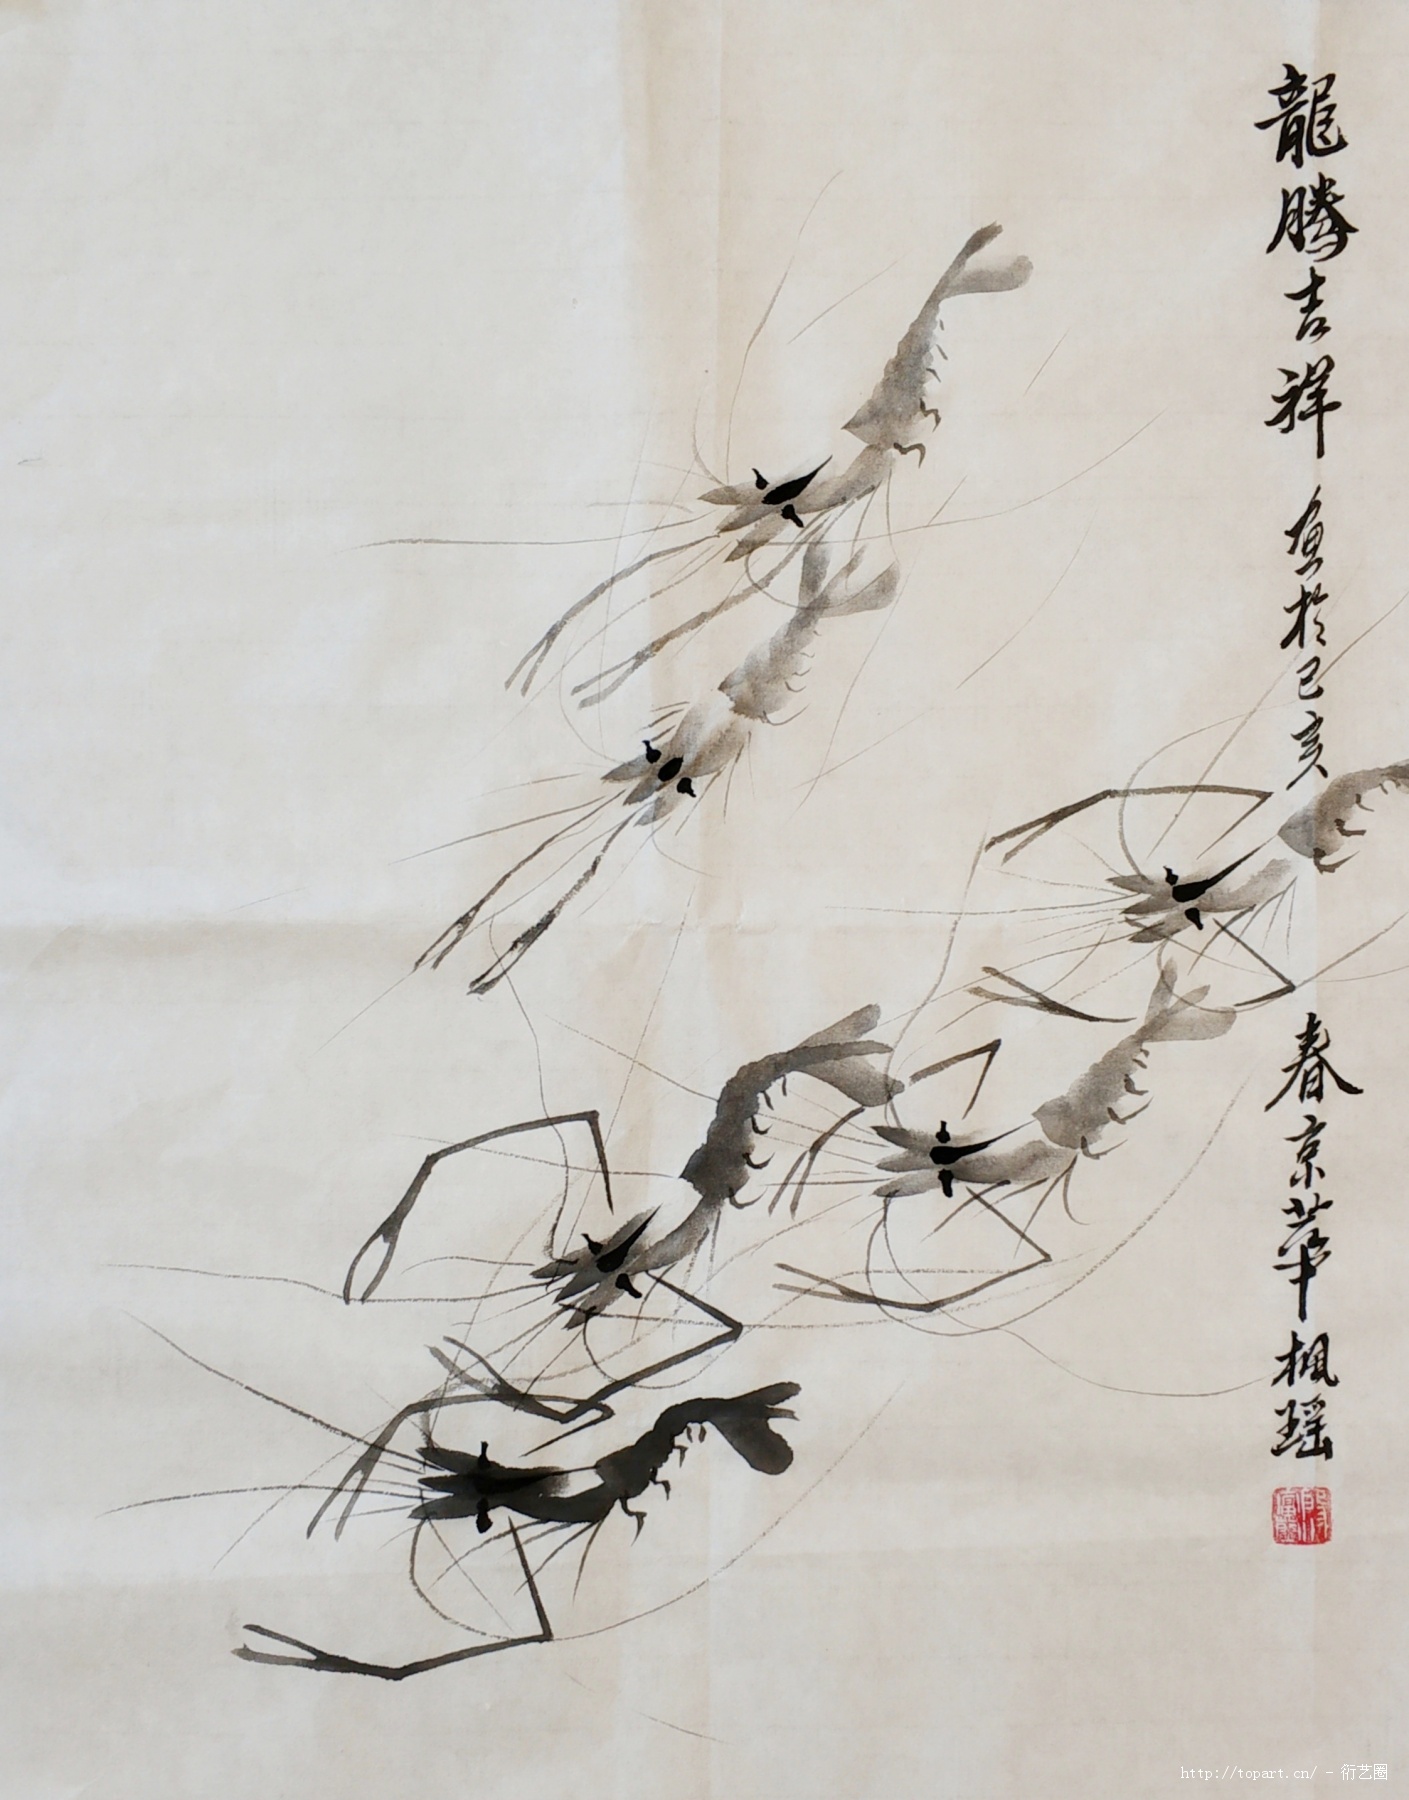 龍騰吉祥 画於己亥 春京華楓瑶
http://topart.cn/ - 衍艺圈